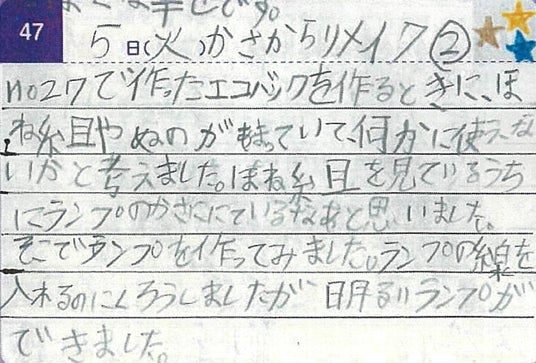 47
5日(火)かさからリメイク②
No27で作ったエコバックを作るときに、ほ
ね糸且やぬのがあまっていて、何かに使えな
いかと考えました。ほね糸且を見ているうち
にランプのかさににているなあと思いました。
そこでランプを作ってみました。ランプの線を
入れるのにくろうしましたが明るいランプが
できました。